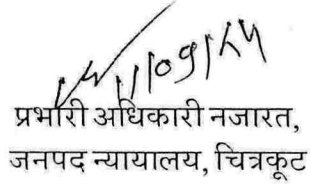 प्रभारी अधिकारी नजारत,
जनपद न्यायालय, चित्रकूट